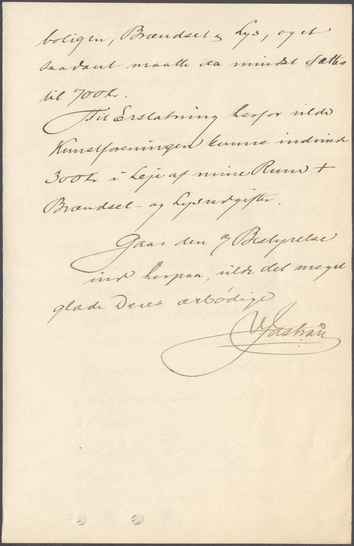 boligen, Brændsel & Lys, og et
saadant maatte da mindst sættes
til 700 kr.
Til Erstatning herfor vilde
Kunstforeningen kunne indvinde
300 kr i Leje af mine Rum +
Brændsel- og Lysudgifter.
Gaar den Bestyrelse
ind herpaa, vilde det meget
glæde Deres ærbødige